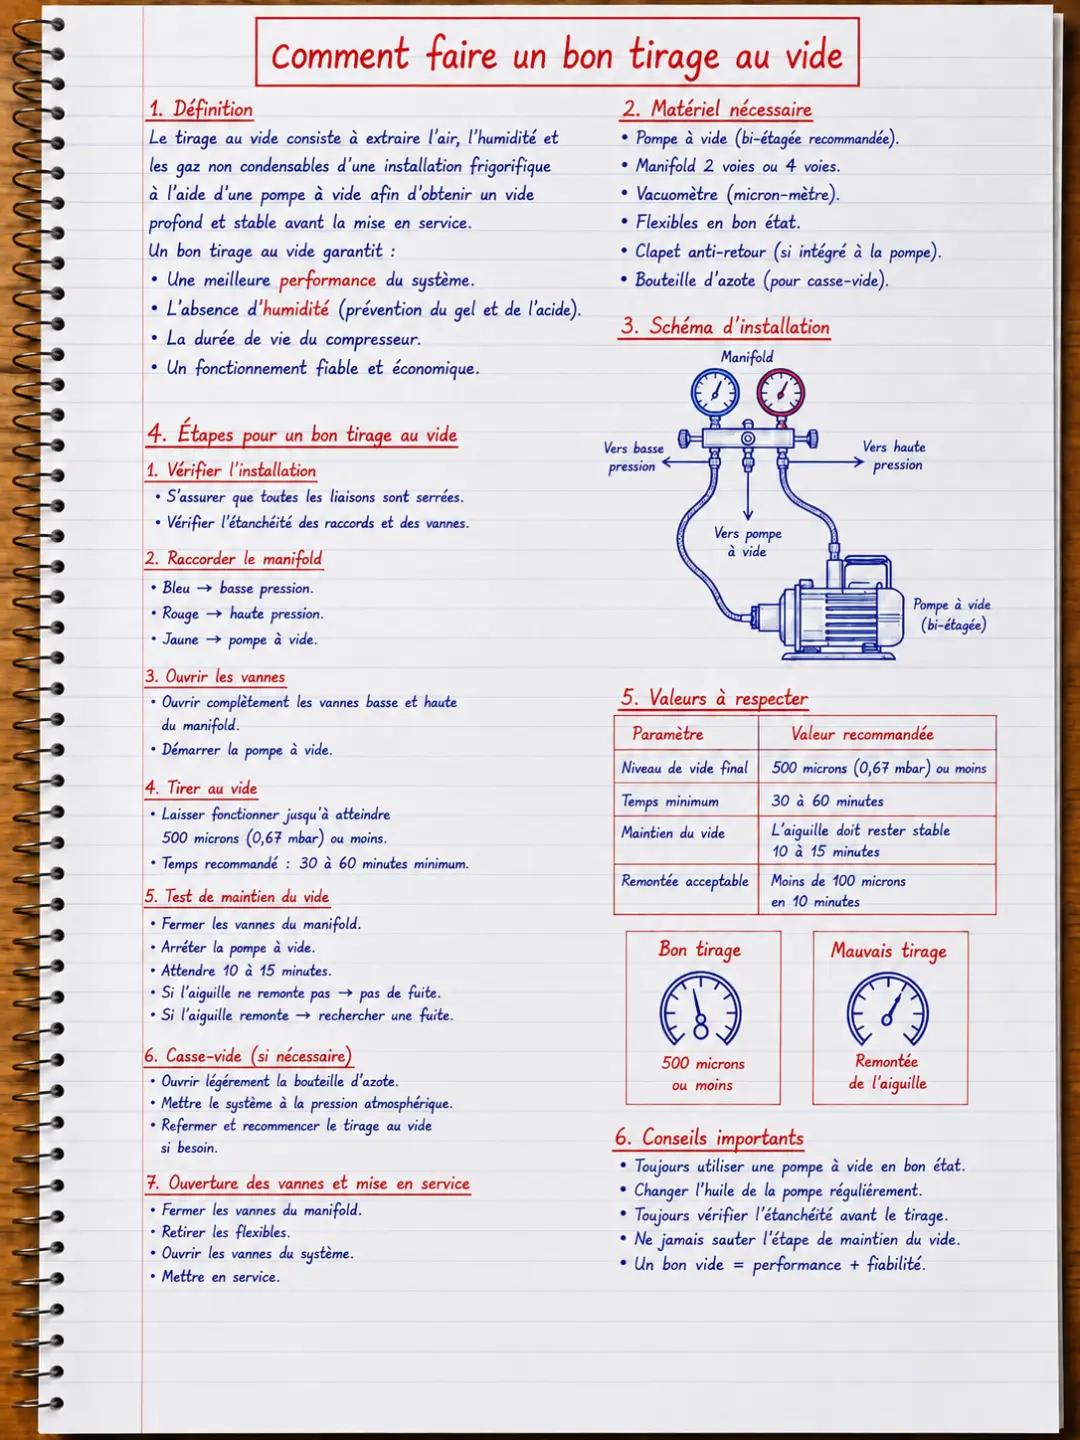 Comment faire un bon tirage au vide
1. Définition
Le tirage au vide consiste à extraire l'air, l'humidité et
les gaz non condensables d'une installation frigorifique
à l'aide d'une pompe à vide afin d'obtenir un vide
profond et stable avant la mise en service.
Un bon tirage au vide garantit :
• Une meilleure performance du système.
• L'absence d'humidité (prévention du gel et de l'acide).
• La durée de vie du compresseur.
• Un fonctionnement fiable et économique.
2. Matériel nécessaire
• Pompe à vide (bi-étagée recommandée).
• Manifold 2 voies ou 4 voies.
• Vacuomètre (micron-mètre).
• Flexibles en bon état.
• Clapet anti-retour (si intégré à la pompe).
• Bouteille d'azote (pour casse-vide).
3. Schéma d'installation
Manifold
Vers basse
pression
Vers haute
pression
Vers pompe
à vide
Pompe à vide
(bi-étagée)
4. Étapes pour un bon tirage au vide
1. Vérifier l'installation
• S'assurer que toutes les liaisons sont serrées.
• Vérifier l'étanchéité des raccords et des vannes.
2. Raccorder le manifold
• Bleu → basse pression.
• Rouge → haute pression.
• Jaune → pompe à vide.
3. Ouvrir les vannes
• Ouvrir complètement les vannes basse et haute
du manifold.
• Démarrer la pompe à vide.
4. Tirer au vide
• Laisser fonctioner jusqu'à atteindre
500 microns (0,67 mbar) ou moins.
• Temps recommandé : 30 à 60 minutes minimum.
5. Test de maintien du vide
• Fermer les vannes du manifold.
• Arréter la pompe à vide.
• Attendre 10 à 15 minutes.
• Si l'aiguille ne remonte pas → pas de fuite.
• Si l'aiguille remonte → rechercher une fuite.
6. Casse-vide (si nécessaire)
• Ouvrir légérement la bouteille d'azote.
• Mettre le système à la pression atmosphérique.
• Refermer et recommencer le tirage au vide
si besoin.
7. Ouverture des vannes et mise en service
• Fermer les vannes du manifold.
• Retirer les flexibles.
• Ouvrir les vannes du système.
• Mettre en service.
5. Valeurs à respecter
Paramètre Valeur recommandée
Niveau de vide final 500 microns (0,67 mbar) ou moins
Temps minimum 30 à 60 minutes
Maintien du vide L'aiguille doit rester stable
10 à 15 minutes
Remontée acceptable Moins de 100 microns
en 10 minutes
Bon tirage
500 microns
ou moins
Mauvais tirage
Remontée
de l'aiguille
6. Conseils importants
• Toujours utiliser une pompe à vide en bon état.
• Changer l'huile de la pompe réguliérement.
• Toujours vérifier l'étanchéité avant le tirage.
• Ne jamais sauter l'étape de maintien du vide.
• Un bon vide = performance + fiabilité.